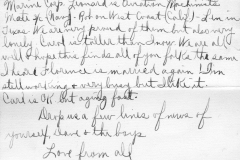 Marine Corp. is Aviation Machinists
Mate 3/c (Navy). Rob on West Coast (Calif) + d in in
Texas. We are very proud of them but also very
lonely. Carl is taller than Tracy. We are all
well & hope this finds all of you folks the same
I heard Florence is married again! I'm
still working & very busy but I like it.
Carl is OK but aging fast.
Drop us a few lines of news of
yourself, Dave & the boys
Love from all